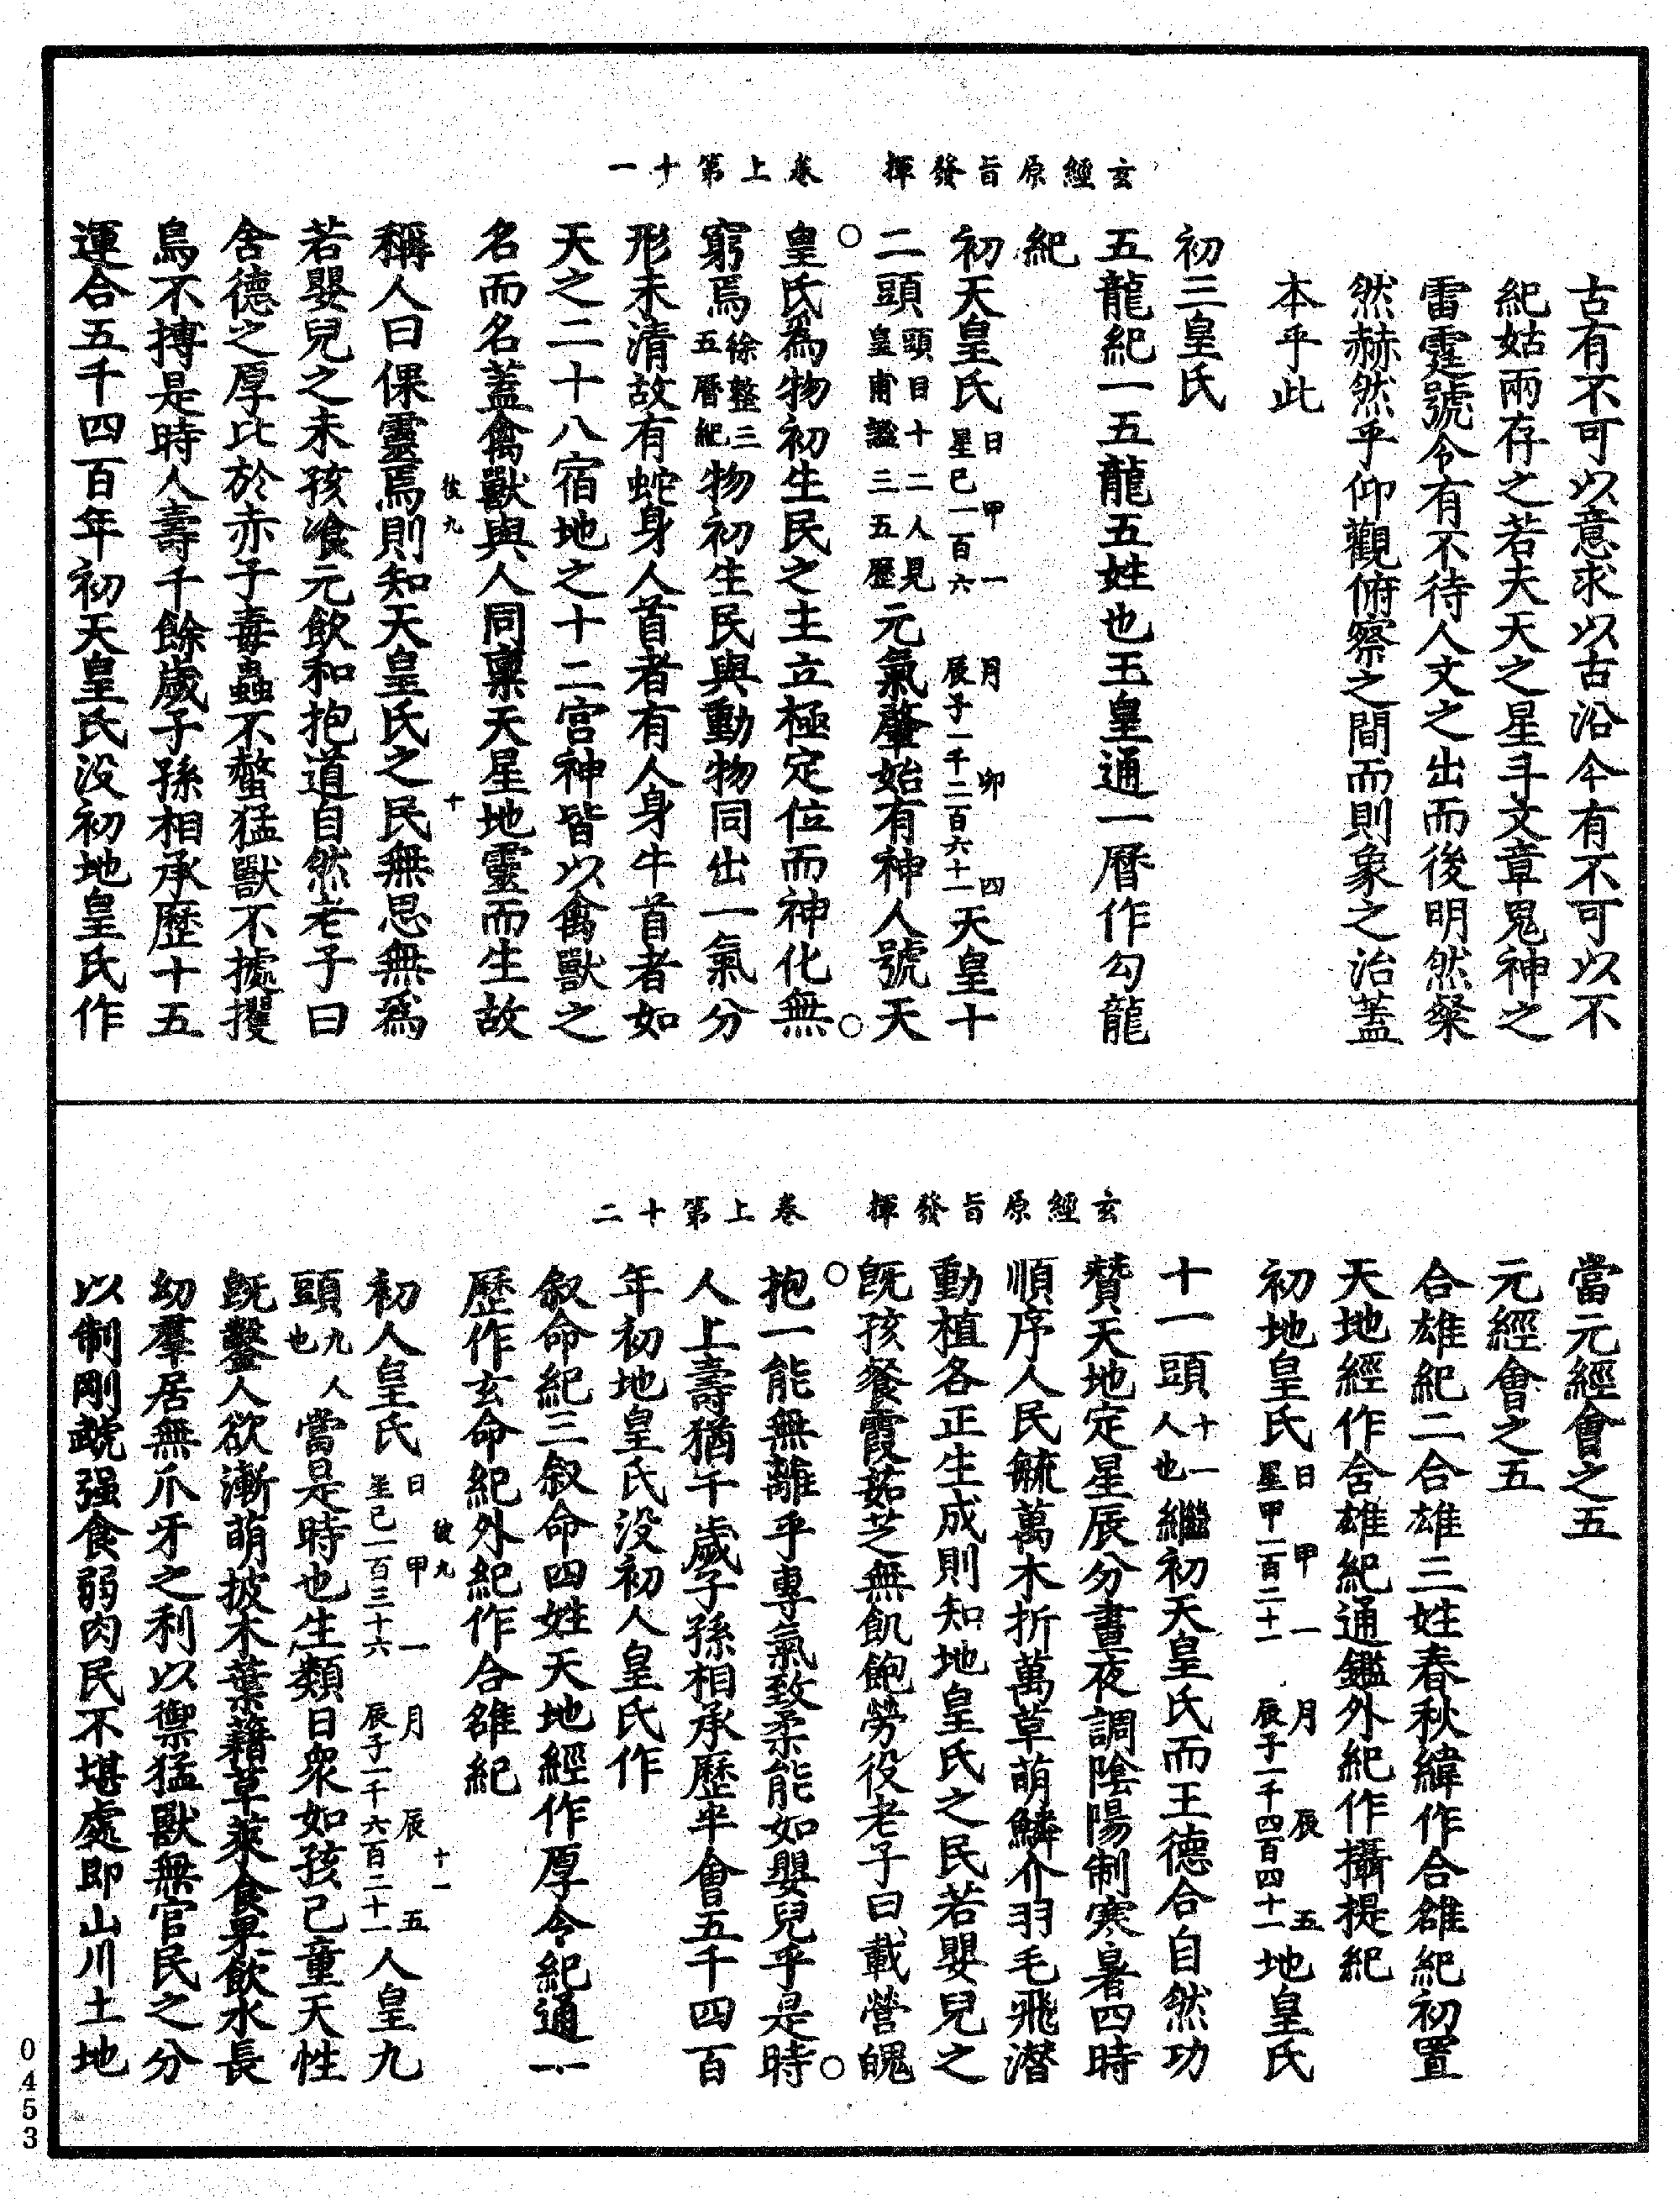 玄經原旨發揮　卷上第十一
古有不可以意求以古沿今有不可以不
紀姑兩存之若夫天之星斗文章鬼神之
雷霆號令有不待人文之出而後明然粲
然赫然乎仰觀俯察之間而則象之治蓋
本乎此
初三皇氏
五龍紀一五龍五姓也玉皇通一曆作勾龍
紀
初天皇氏日甲一星巳一百六月卯四辰子一千二百六十一天皇十
二頭頭目十二人見皇甫謐三五歷元氣肇始有神人號天
皇氏爲物初生民之主立極定位而神化無
窮焉徐整三五曆紀物初生民與動物同出一氣分
形未清故有蛇身人首者有人身牛首者如
天之二十八宿地之十二宮神皆以禽獸之
名而名蓋禽獸與人同稟天星地靈而生故
彼九　十
稱人曰倮靈焉則知天皇氏之民無思無爲
若嬰兒之未孩飡元飲和抱道自然老子曰
含德之厚比於赤子毒蟲不螫猛獸不據攫
鳥不搏是時人壽千餘歲子孫相承歷十五
運合五千四百年初天皇氏没初地皇氏作
玄經原旨發揮　卷上第十二
當元經會之五
元經會之五
合雄紀二合雄三姓春秋緯作合雒紀初置
天地經作舍雄紀通鑑外紀作攝提紀
初地皇氏日甲一星甲一百二十一月辰五辰子一千四百四十一地皇氏
十一頭十一人也繼初天皇氏而王德合自然功
贊天地定星辰分晝夜調陰陽制寒暑四時
順序人民毓萬木折萬草萌鱗介羽毛飛潛
動植各正生成則知地皇氏之民若嬰兒之
旣孩餐霞茹芝無飢飽勞役老子曰載營魄
抱一能無離乎專氣致柔能如嬰兒乎是時
人上壽猶千歲子孫相承歷半會五千四百
年初地皇氏没初人皇氏作
叙命紀三叙命四姓天地經作厚令紀通一
歷作玄命紀外紀作合雒紀
彼九　十一
初人皇氏日甲一星己一百三十六月辰五辰子一千六百二十一人皇九
頭九人也當是時也生類日衆如孩己童天性
旣鑿人欲漸萌披木葉藉草萊食果飲水長
幼羣居無爪牙之利以禦猛獸無官民之分
以制剛虣强食弱肉民不堪處即山川土地
0453